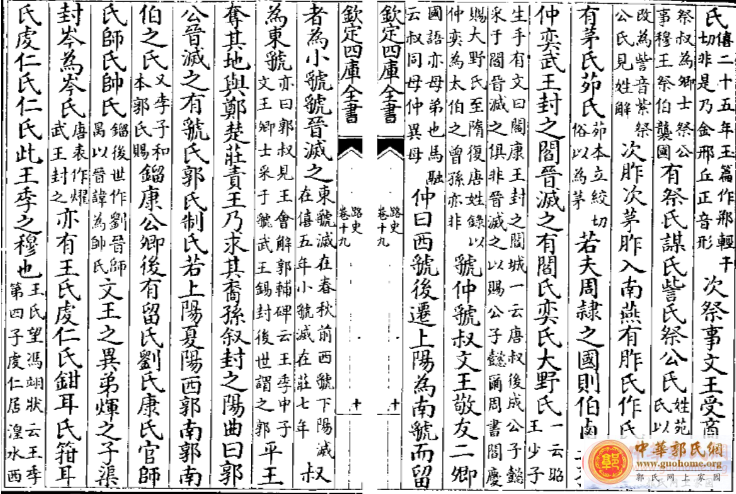 氏僖二十五年王篇作郱輕干
切非是乃金邢丘正音形
次祭事文王受商
祭叔為卿士祭公
事穆王祭伯龔國
有祭氏謀氏訾氏祭公氏姓苑
氏以
改為訾音紫祭
公氏見姓解
次胙次茅胙入南燕有胙氏作氏
有茅氏茆氏茆本立絞切
俗以為茅
若夫周隷之國則伯
仲奕武王封之閻晉滅之有閻氏奕氏大野氏一云昭
王少子
生手有文曰閻康王封之閻城一云唐叔後成公子懿
采于閻晉滅之俱非晉滅之以賜公子懿爾周書閻慶
賜大野氏至隋復唐姓錄以
仲奕為太伯之曾孫亦非
虢仲虢叔文王敬友二卿
國語亦母弟也馬融
云叔同母仲異母
仲曰西虢後遷上陽為南虢而留
欽定四庫全書
路史
卷十九
十
欽定四庫全書
路史
卷十九
十
者為小虢虢晉滅之東虢滅在春秋前西虢下陽滅
在僖五年小虢滅在莊七年
叔
為東虢亦曰郭叔見王會解郭輔碑云王季中子
文王卿士采于虢武王錫封後世謂之郭
平王
奪其地與鄭楚莊責王乃求其裔孫叙封之陽曲曰郭
公晉滅之有虢氏郭氏制氏若上陽夏陽西郭南郭南
伯之氏又李子和
本郭氏賜
鎦康公卿後有留氏劉氏康氏官師
氏師氏帥氏鎦後世作劉晉師
昺以晉諱為帥氏
文王之異弟煇之子渠
封岑為岑氏唐表作燿
武王封之
亦有王氏虔仁氏鉗耳氏箝耳
氏虔仁氏仁氏此王季之穆也王氏望馮翊狀云王季
第四子虔仁居湟水西
中華郭氏網
www.guohome.org
郭氏網上家園